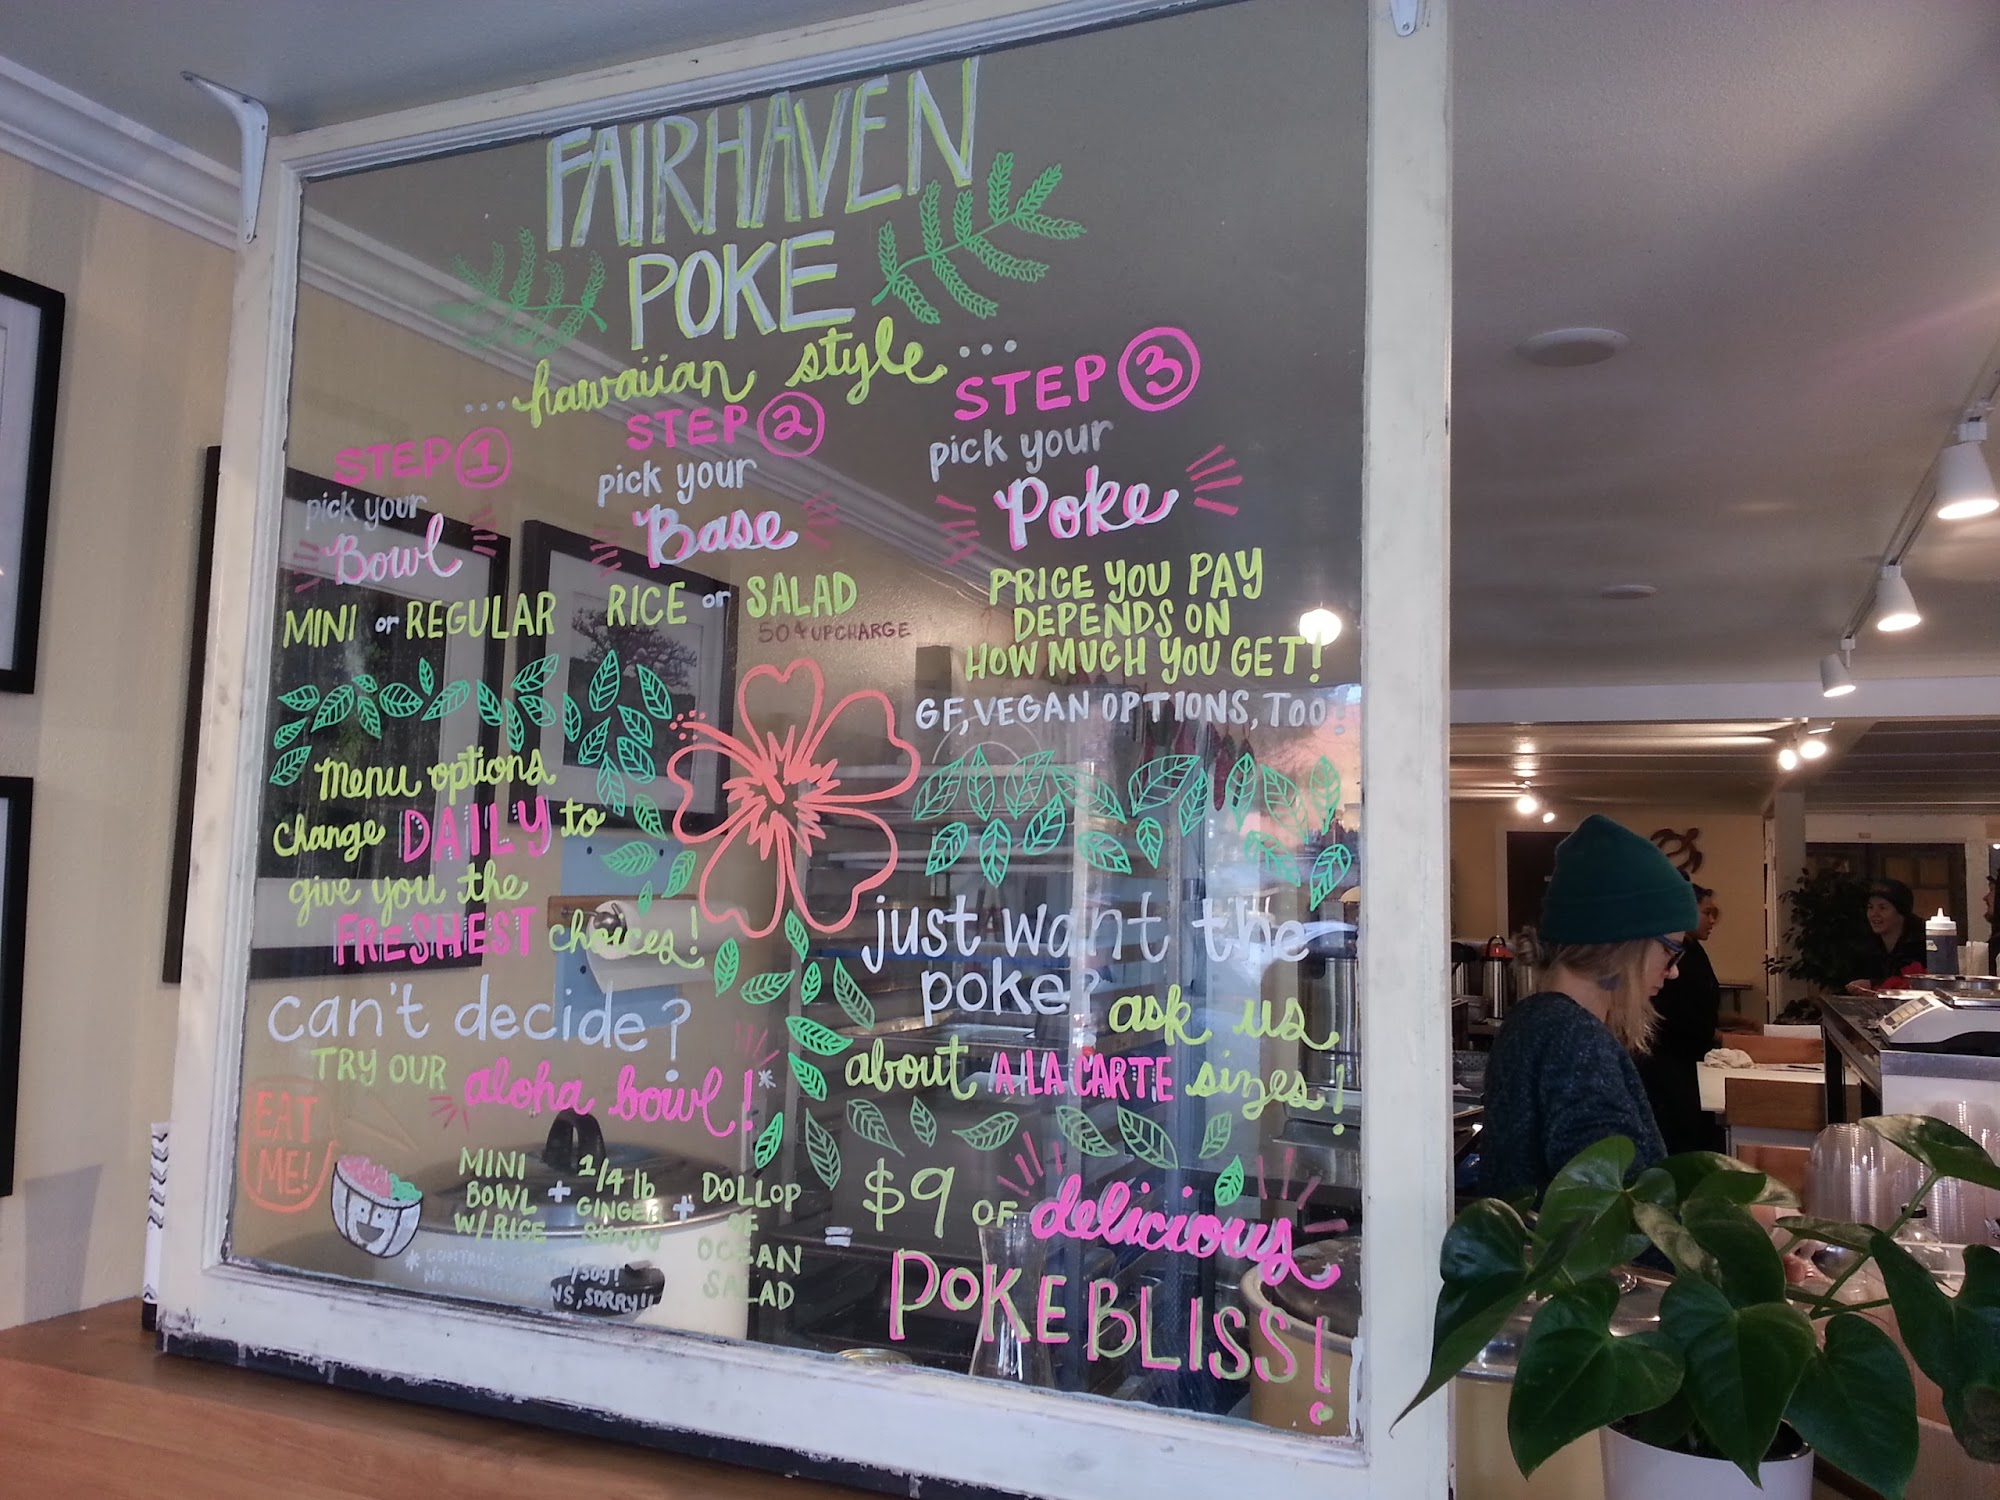 FAIRHAVEN
POKE
...hawaiian style...
STEP 1
pick your
Bowl
MINI or REGULAR
STEP 2
pick your
Base
RICE or SALAD
50¢ UPCHARGE
STEP 3
pick your
Poke
PRICE YOU PAY
DEPENDS ON
HOW MUCH YOU GET!
GF, VEGAN OPTIONS, TOO!
menu options
change DAILY to
give you the
FRESHEST choices!
can't decide?
TRY OUR aloha bowl!*
EAT
ME!
MINI
BOWL
W/RICE
+
1/4 lb
GINGER
SHOYU
+
DOLLOP
OF
OCEAN
SALAD
=
* CONTAINS /SOY!
NO SUBSTITUTIONS, SORRY!!
just want the
poke? ask us
about A LA CARTE sizes!
$9 OF delicious
POKE BLISS!